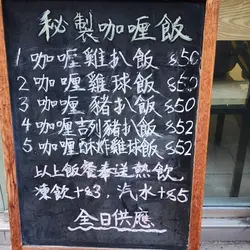 秘製咖喱飯
1 咖喱雞扒飯 $50
2 咖喱雞球飯 $50
3 咖喱豬扒飯 $50
4 咖喱吉列豬扒飯 $52
5 咖喱酥炸雞球飯 $52
以上飯餐奉送熱飲
凍飲+$3, 汽水+$5
全日供應